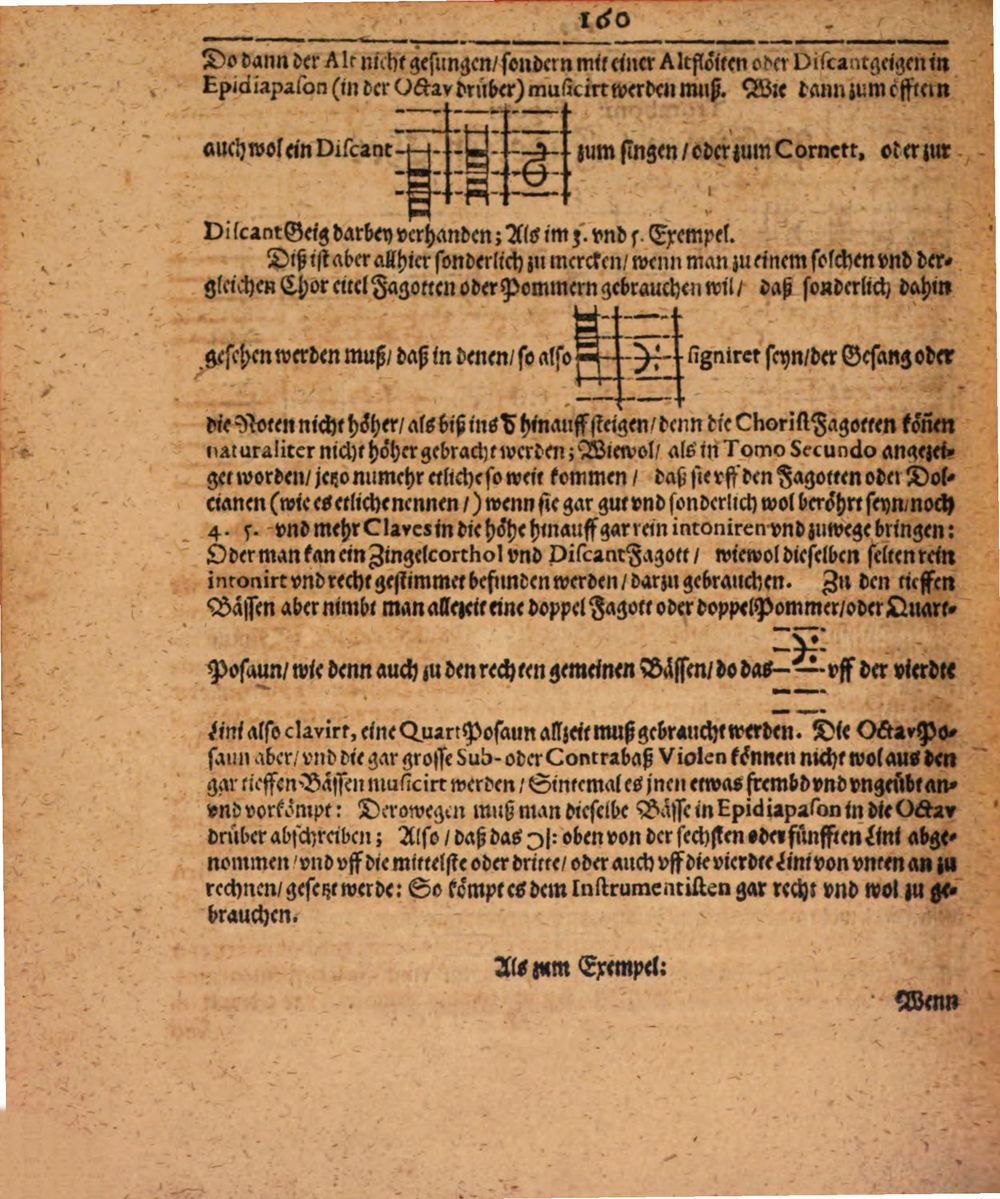 160
Do dann der Alt nicht gesungen/ sondern mit einer Altflöiten oder Discantgeigen in
Epidiapason (in der Octav drüber) musicirt werden muß. Wie dann zum öfftern
auch wol ein Discant zum singen / oder zum Cornett, oder zur
Discant Geig darbey verhanden; Als im 3. vnd 5. Exempel.
Diß ist aber allhier sonderlich zu mercken/ wenn man zu einem solchen vnd der-
gleichen Chor eitel Fagotten oder Pommern gebrauchen wil/ daß sonderlich dahin
gesehen werden muß/ daß in denen/ so also signiret seyn/ der Gesang oder
die Noten nicht höher/ als biß ins hinauff steigen/ denn die Chorist Fagotten köñen
naturaliter nicht höher gebracht werden; Wiewol/ als in Tomo Secundo angezei-
get worden/ jetzo numehr etliche so weit kommen / daß sie vff den Fagotten oder Dol-
cianen (wie es etliche nennen /) wenn sie gar gut vnd sonderlich wol beröhrt seyn/ noch
4. 5. vnd mehr Claves in die höhe hinauff gar rein intoniren vnd zuwege bringen:
Oder man kan ein Zingelcorthol vnd Discant Fagott / wiewol dieselben selten rein
intonirt vnd recht gestimmet befunden werden / darzu gebrauchen. Zu den tieffen
Bässen aber nimbt man allezeit eine doppel Fagott oder doppel Pommer/ oder Quart-
Posaun/ wie denn auch zu den rechten gemeinen Bässen/ do das vff der vierdte
Lini also clavirt, eine Quart Posaun allzeit muß gebraucht werden. Die Octav Po-
saun aber/ vnd die gar grosse Sub- oder Contrabaß Violen können nicht wol aus den
gar tieffen Bässen musicirt werden / Sintemal es jnen etwas frembd vnd vngeübt an-
vnd vorkömpt: Derowegen muß man dieselbe Bässe in Epidiapason in die Octav
drüber abschreiben; Also / daß das oben von der sechsten oder fünfften Lini abge-
nommen / vnd vff die mittelste oder dritte/ oder auch vff die vierdte Lini von vnten an zu
rechnen/ gesetzt werde: So kömpt es dem Instrumentisten gar recht vnd wol zu ge-
brauchen.
Als zum Exempel:
Wenn